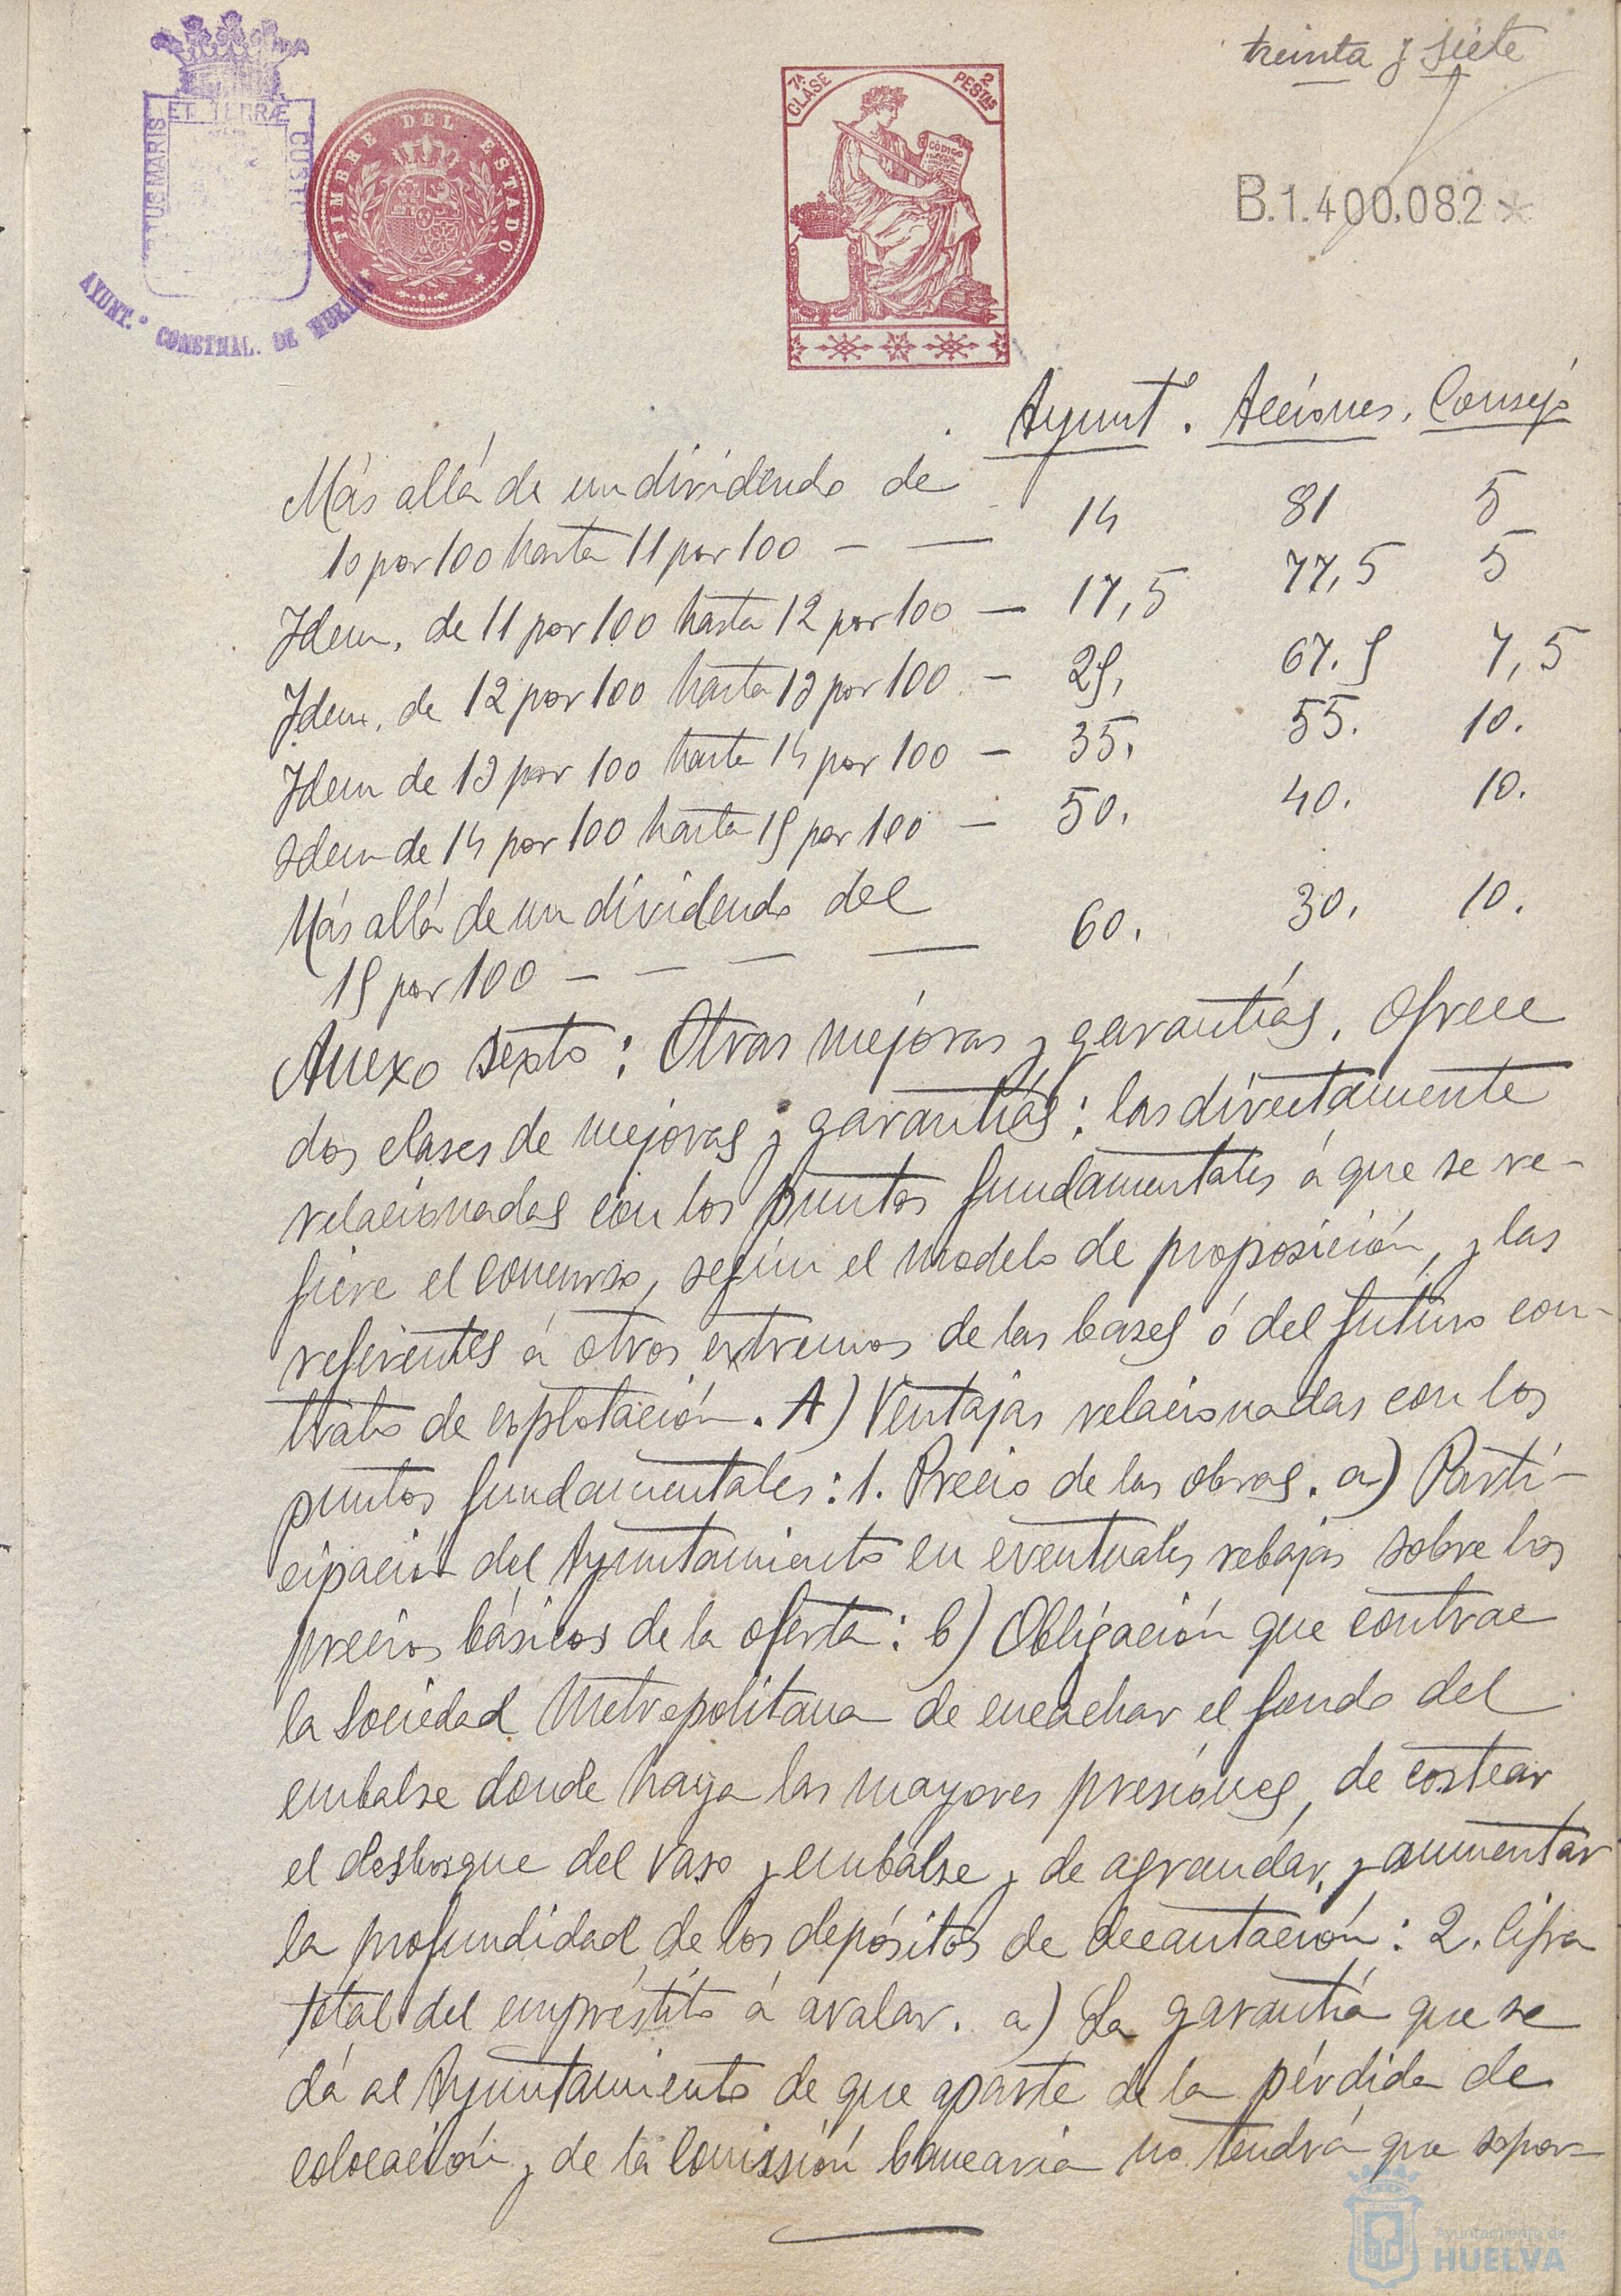 treinta y siete
ET TERRÆ
TUS MARIS
CUST
AYUNT.º CONSTNAL. DE HUELVA
TIMBRE DEL ESTADO
7ª CLASE
2 PESTAS
CÓDIGO
B.1.400.082*
Ayuntº. Acciones. Consejo
Más allá de un dividendo de
10 por 100 hasta 11 por 100 — — 14 81 5
Idem. de 11 por 100 hasta 12 por 100 — 17,5 77,5 5
Idem. de 12 por 100 hasta 13 por 100 — 25, 67.5 7,5
Idem de 13 por 100 hasta 14 por 100 — 35. 55. 10.
Idem de 14 por 100 hasta 15 por 100 — 50. 40. 10.
Más allá de un dividendo del
15 por 100 — — — — 60. 30. 10.
Anexo sexto: Otras mejoras y garantías. Ofrece
dos clases de mejoras y garantías: las directamente
relacionadas con los puntos fundamentales á que se re-
fiere el concurso, según el modelo de proposición, y las
referentes á otros extremos de las bases ó del futuro con-
trato de explotación. A) Ventajas relacionadas con los
puntos fundamentales: 1. Precio de las obras. a) Parti-
cipación del Ayuntamiento en eventuales rebajas sobre los
precios básicos de la oferta: b) Obligación que contrae
la Sociedad Metropolitana de encachar el fondo del
embalse donde haya las mayores presiones, de costear
el desbosque del vaso y embalse y de agrandar, y aumentar
la profundidad de los depósitos de decantación: 2. Cifra
total del empréstito á avalar. a) La garantía que se
dá al Ayuntamiento de que aparte de la pérdida de
colocación y de la comissión bancaria no tendrá que sopor-
Ayuntamiento de
HUELVA